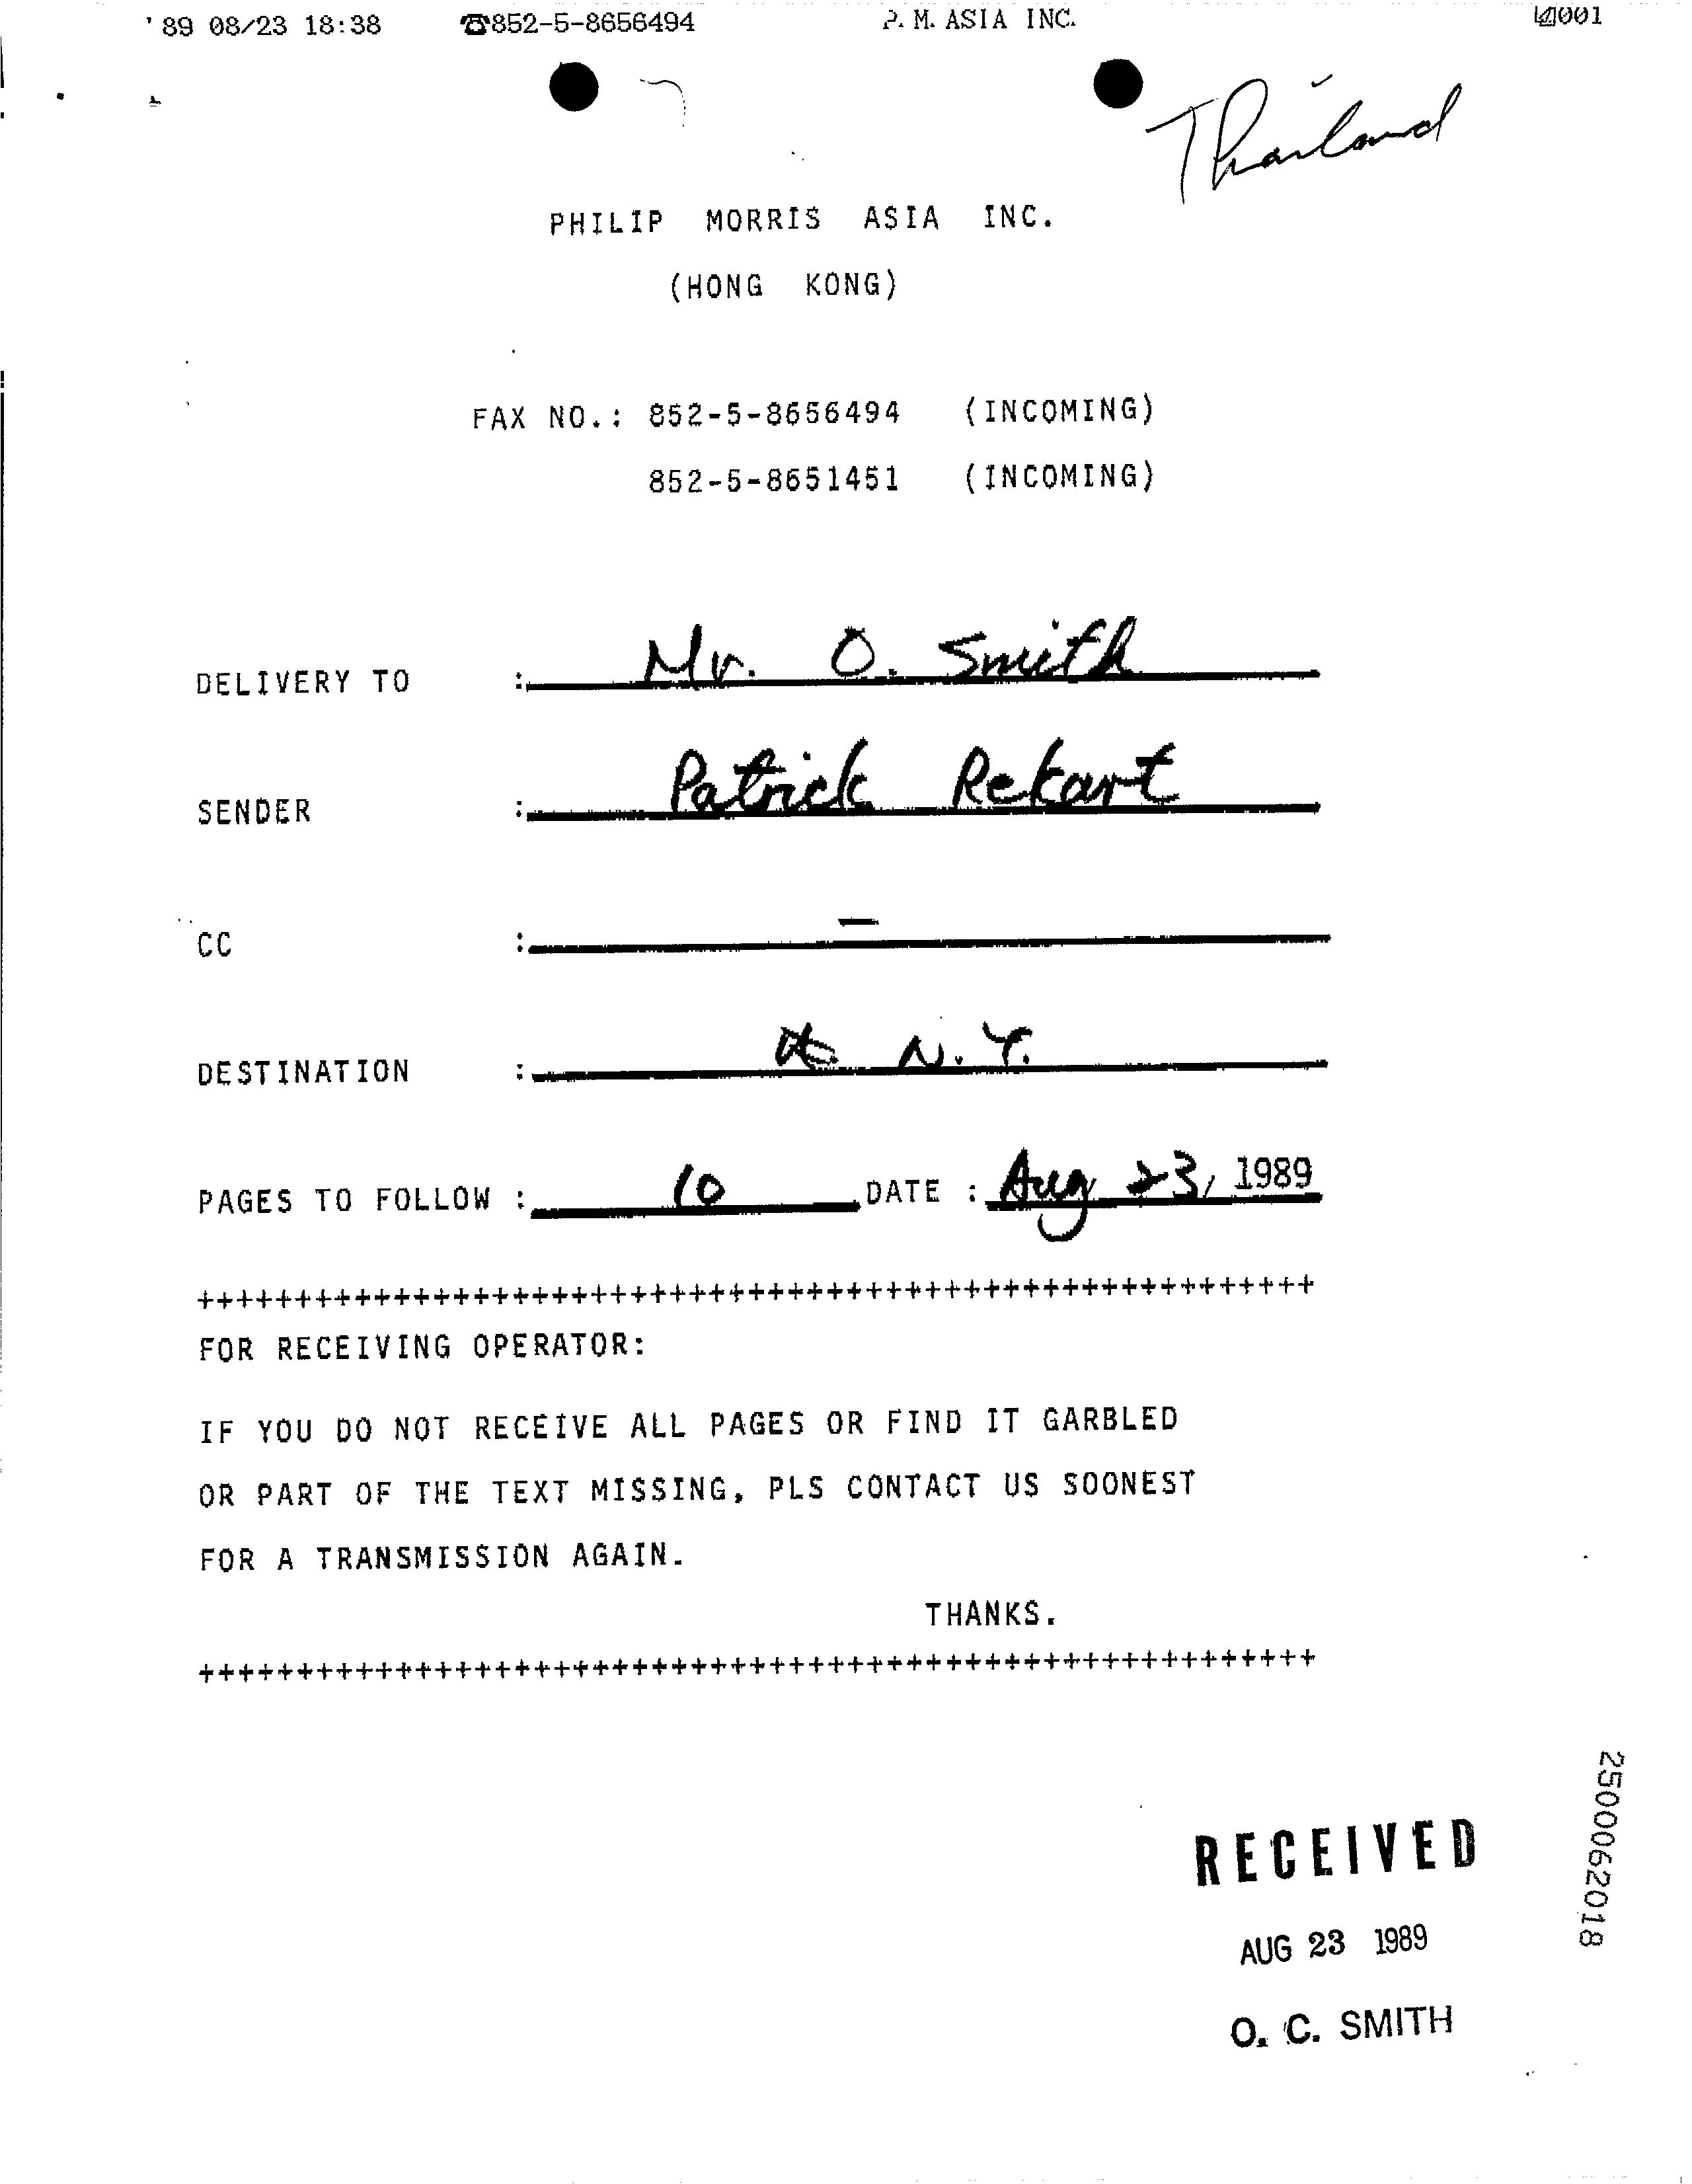 '89 08/23 18:38 ☎852-5-8656494 P. M. ASIA INC. 001
Thailand
PHILIP MORRIS ASIA INC.
(HONG KONG)
FAX NO.: 852-5-8656494 (INCOMING)
852-5-8651451 (INCOMING)
DELIVERY TO : Mr. O. Smith
SENDER : Patrick Rekart
CC : —
DESTINATION : N.Y.
PAGES TO FOLLOW : 10 DATE : Aug 23, 1989
+++++++++++++++++++++++++++++++++++++++++++++++++++++++++
FOR RECEIVING OPERATOR:
IF YOU DO NOT RECEIVE ALL PAGES OR FIND IT GARBLED
OR PART OF THE TEXT MISSING, PLS CONTACT US SOONEST
FOR A TRANSMISSION AGAIN.
THANKS.
+++++++++++++++++++++++++++++++++++++++++++++++++++++++++
RECEIVED
AUG 23 1989
O. C. SMITH
2500062018